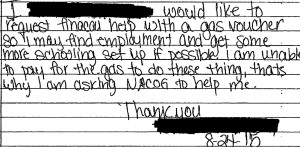 I would like to
request finacal help with a gas voucher
so I may find employment and get some
more schooling set up if possible. I am unable
to pay for the gas to do these thing, thats
why I am asking NACOG to help me.
Thank you
8-24-15